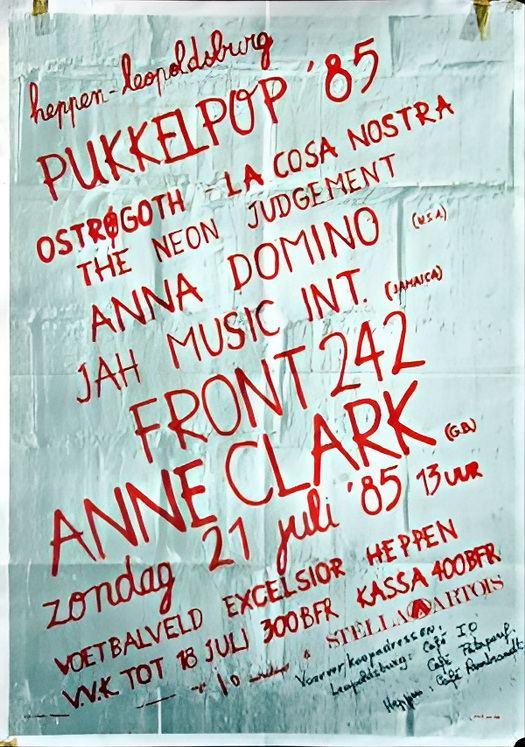 heppen-leopoldsburg
PUKKELPOP '85
OSTRØGOTH - LA COSA NOSTRA
THE NEON JUDGEMENT
ANNA DOMINO (U.S.A.)
JAH MUSIC INT. (JAMAICA)
FRONT 242
ANNE CLARK (G.B.)
zondag 21 juli '85 13 UUR
VOETBALVELD EXCELSIOR HEPPEN
V.V.K TOT 18 JULI 300BFR KASSA 400BFR
STELLA ARTOIS
Voorverkoopadressen:
Leopoldsburg: Café IO
Café
Heppen: Café Rembrandt